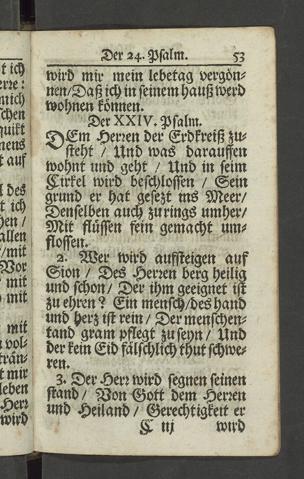 Der 24. Psalm. 53
wird mir mein lebetag vergön-
nen/Daß ich in seinem hauß werd
wohnen können.
Der XXIV. Psalm.
DEm Herren der Erdkreiß zu-
steht / Und was darauffen
wohnt und geht / Und in seim
Cirkel wird beschlossen / Sein
grund er hat gesezt ins Meer/
Denselben auch zurings umher/
Mit flüssen fein gemacht um-
flossen.
2. Wer wird auffsteigen auf
Sion / Des Herren berg heilig
und schon/ Der ihm geeignet ist
zu ehren? Ein mensch/des hand
und herz ist rein/ Der menschen-
tand gram pflegt zu seyn/ Und
der kein Eid fälschlich thut schwe-
ren.
3. Der Herr wird segnen seinen
stand/ Von Gott dem Herren
und Heiland/ Gerechtigkeit er
C iij wird